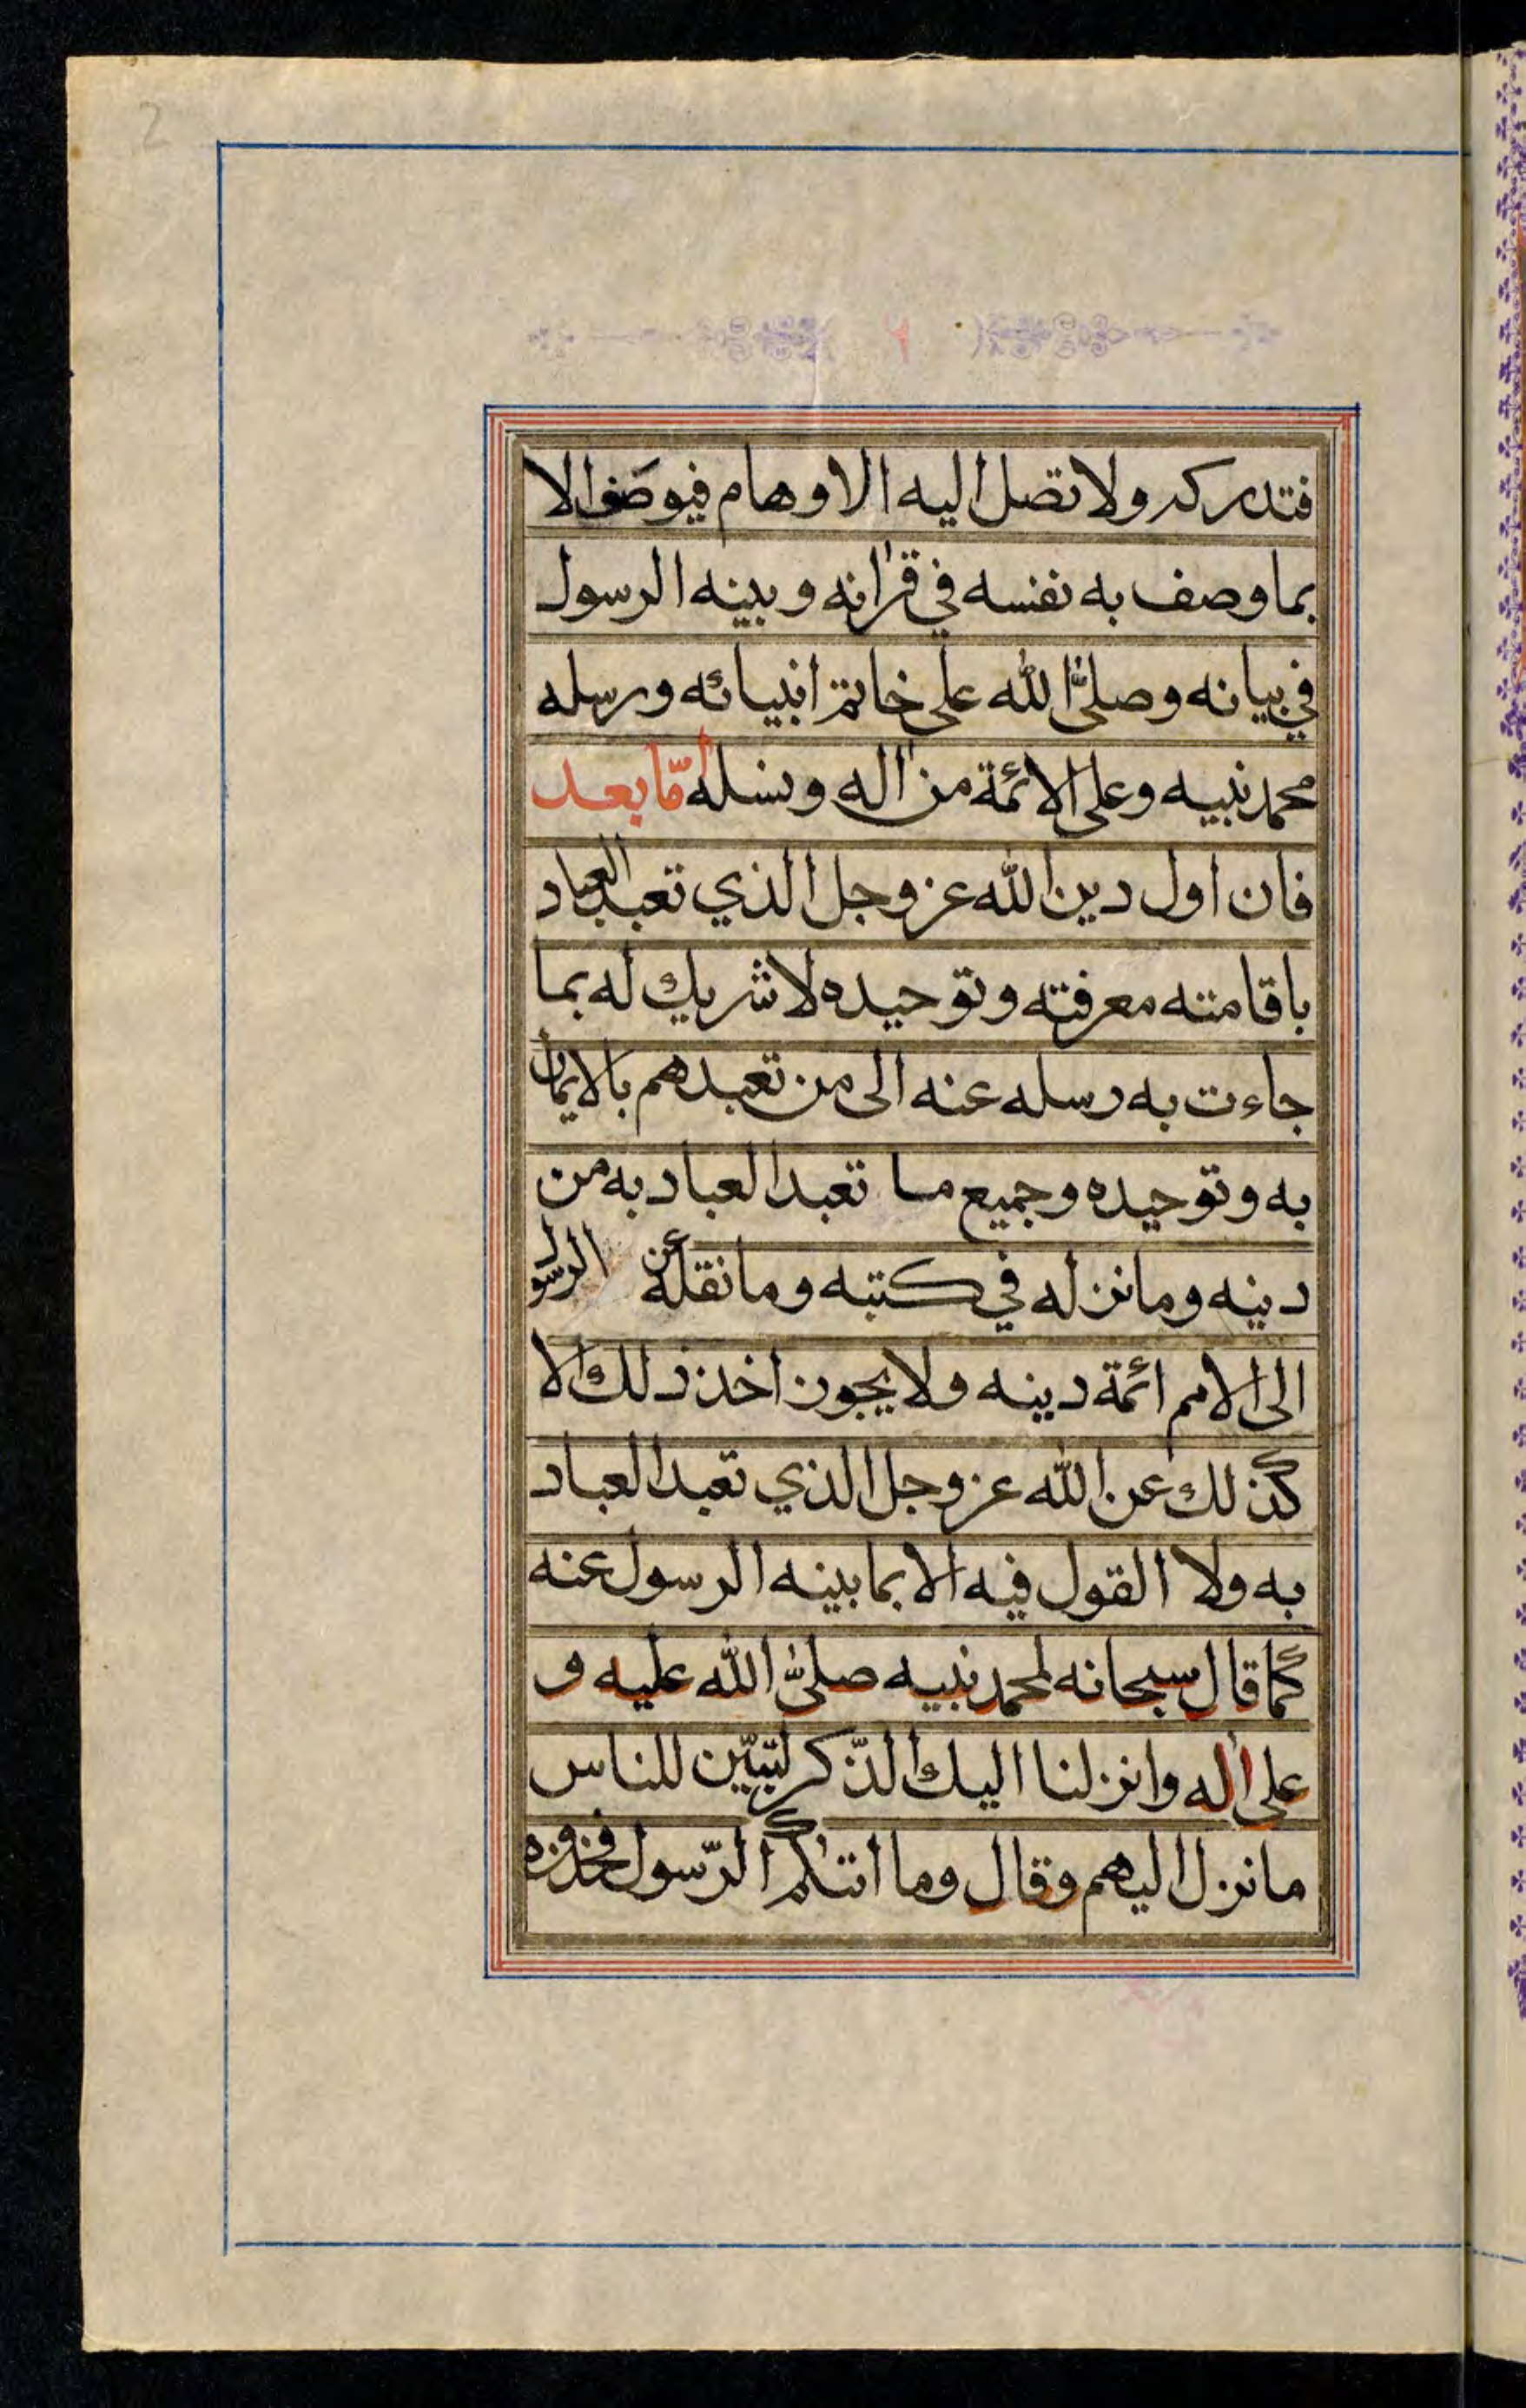 2
فتدركه ولا تصل اليه الاوهام فيوصف الا
بما وصف به نفسه في قرانه وبينه الرسول
في بيانه وصلى الله على خاتم انبيائه ورسله
محمد نبيه وعلى الائمة من اله ونسله أمّا بعد
فان اول دين الله عز وجل الذي تعبد العباد
باقامته معرفته وتوحيده لا شريك له بما
جاءت به رسله عنه الى من تعبدهم بالايمان
به وتوحيده وجميع ما تعبد العباد به من
دينه وما نزله في كتبه وما نقله عن الرسول
الى الامم ائمة دينه ولا يجوز اخذ ذلك الا
كذلك عن الله عز وجل الذي تعبد العباد
به ولا القول فيه الا بما بينه الرسول عنه
كما قال سبحانه لمحمد نبيه صلى الله عليه و
على اله وانزلنا اليك الذّكر لتبيّن للناس
ما نزل اليهم وقال وما اتىكم الرّسول فخذوه